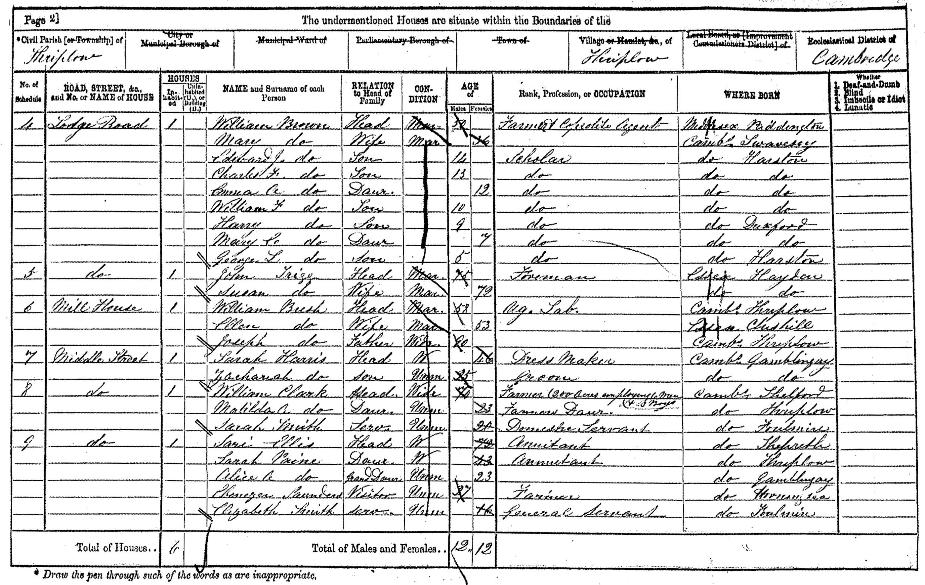 Page 2]
The undermentioned Houses are situate within the Boundaries of the
*Civil Parish [or Township] of
City or Municipal Borough of
Municipal Ward of
Parliamentary Borough of
Town of
Village or Hamlet, &c., of
Local Board, or [Improvement Commissioners District] of
Ecclesiastical District of
Thriplow
Thriplow
Cambridge
No. of Schedule
ROAD, STREET, &c., and No. or NAME of HOUSE
HOUSES
Inhabited
Uninhabited (U.), or Building (B.)
NAME and Surname of each Person
RELATION to Head of Family
CONDITION
AGE of
Males
Females
Rank, Profession, or OCCUPATION
WHERE BORN
Whether
1. Deaf-and-Dumb
2. Blind
3. Imbecile or Idiot
4. Lunatic
4 Lodge Road 1 William Brown Head Mar Middsex Paddington
Mary do Wife Mar Cambs Swavesey
Edward J. do Son 14 Scholar do Harston
Charles F. do Son 13 do do do
Emma A. do Daur. 12 do do do
William F do Son 10 do do do
Harry do Son 9 do do Duxford
Mary E. do Daur 7 do do do
George L. do Son 5 do do Harston
5 do 1 John Head Mar. 75 Foreman Essex Haydon
Susan do Wife Mar 79 do do
6 Mill House 1 William Bush Head Mar. 58 Ag. Lab. Cambs Thriplow
Ellen do Wife Mar 53
Joseph do Father 90 Cambs Thriplow
7 Middle Street 1 Sarah Harris Head W Dress Maker Cambs Gamblingay
Zachariah do son Unm 25 Groom do do
8 do 1 William Clark Head Farmer Cambs Shelford
Matilda A. do Daur Unm 23 Farmers Daur. do Thriplow
Sarah Smith Serv. Unm Domestic Servant do
9 do 1 Ellis Head W Annuitant do Shepreth
Sarah Paine Daur W Annuitant do Thriplow
Alice A. do Grand Daur Unm 23 do Gamblingay
Ebenezer Saunders Visitor Unm 37 Farmer do
Elizabeth Smith serv Unm General Servant do
Total of Houses.. 6
Total of Males and Females.. 12 12
* Draw the pen through such of the words as are inappropriate.